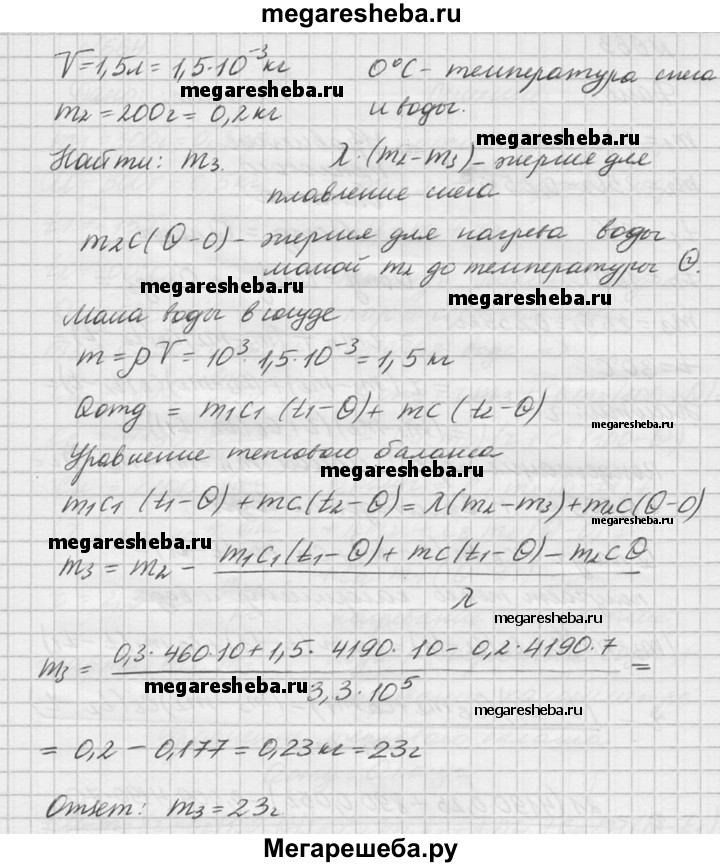 megaresheba.ru
V=1,5л=1,5·10⁻³кг 0°С- температура снега
megaresheba.ru
m₂=200г=0,2кг и воды.
megaresheba.ru
Найти: m₃. λ·(m₂-m₃)- энергия для
плавление снега
m₂c(Θ-0)- энергия для нагрева воды
массой m₂ до температуры Θ.
megaresheba.ru megaresheba.ru
Масса воды в сосуде
m=ρV=10³·1,5·10⁻³=1,5кг
Qотд = m₁c₁(t₁-Θ)+mc(t₂-Θ)
megaresheba.ru
Уравнение теплового баланса
megaresheba.ru
m₁c₁(t₁-Θ)+mc(t₂-Θ)=λ(m₂-m₃)+m₂c(Θ-0)
megaresheba.ru
megaresheba.ru
m₃=m₂- m₁c₁(t₁-Θ)+mc(t₁-Θ)-m₂cΘ
λ
megaresheba.ru
m₃= 0,3·460·10+1,5·4190·10-0,2·4190·7 =
megaresheba.ru 3,3·10⁵
megaresheba.ru
=0,2-0,177=0,23кг=23г
Ответ: m₃=23г
megaresheba.ru
Мегарешеба.ру